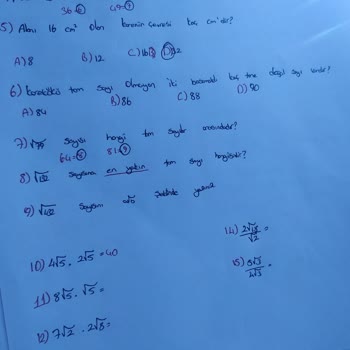 36 49
5) Alanı 16 cm² olan karenin çevresi kaç cm'dir?
A) 8 B) 12 C) 16 D) 32
6) Karekökü tam sayı olmayan iki basamaklı kaç tane doğal sayı vardır?
A) 84 B) 86 C) 88 D) 90
7) sayısı hangi tam sayılar arasındadır?
64=8 81=9
8) sayısına en yakın tam sayı hangisidir?
9) sayısını a√b şeklinde yazınız
10) 4√5 . 2√5 = 40
11) 8√5 . √5 =
12) 7√2 . 2√8 =
14) 2√18/√2 =
15) 8√3/4√3 =